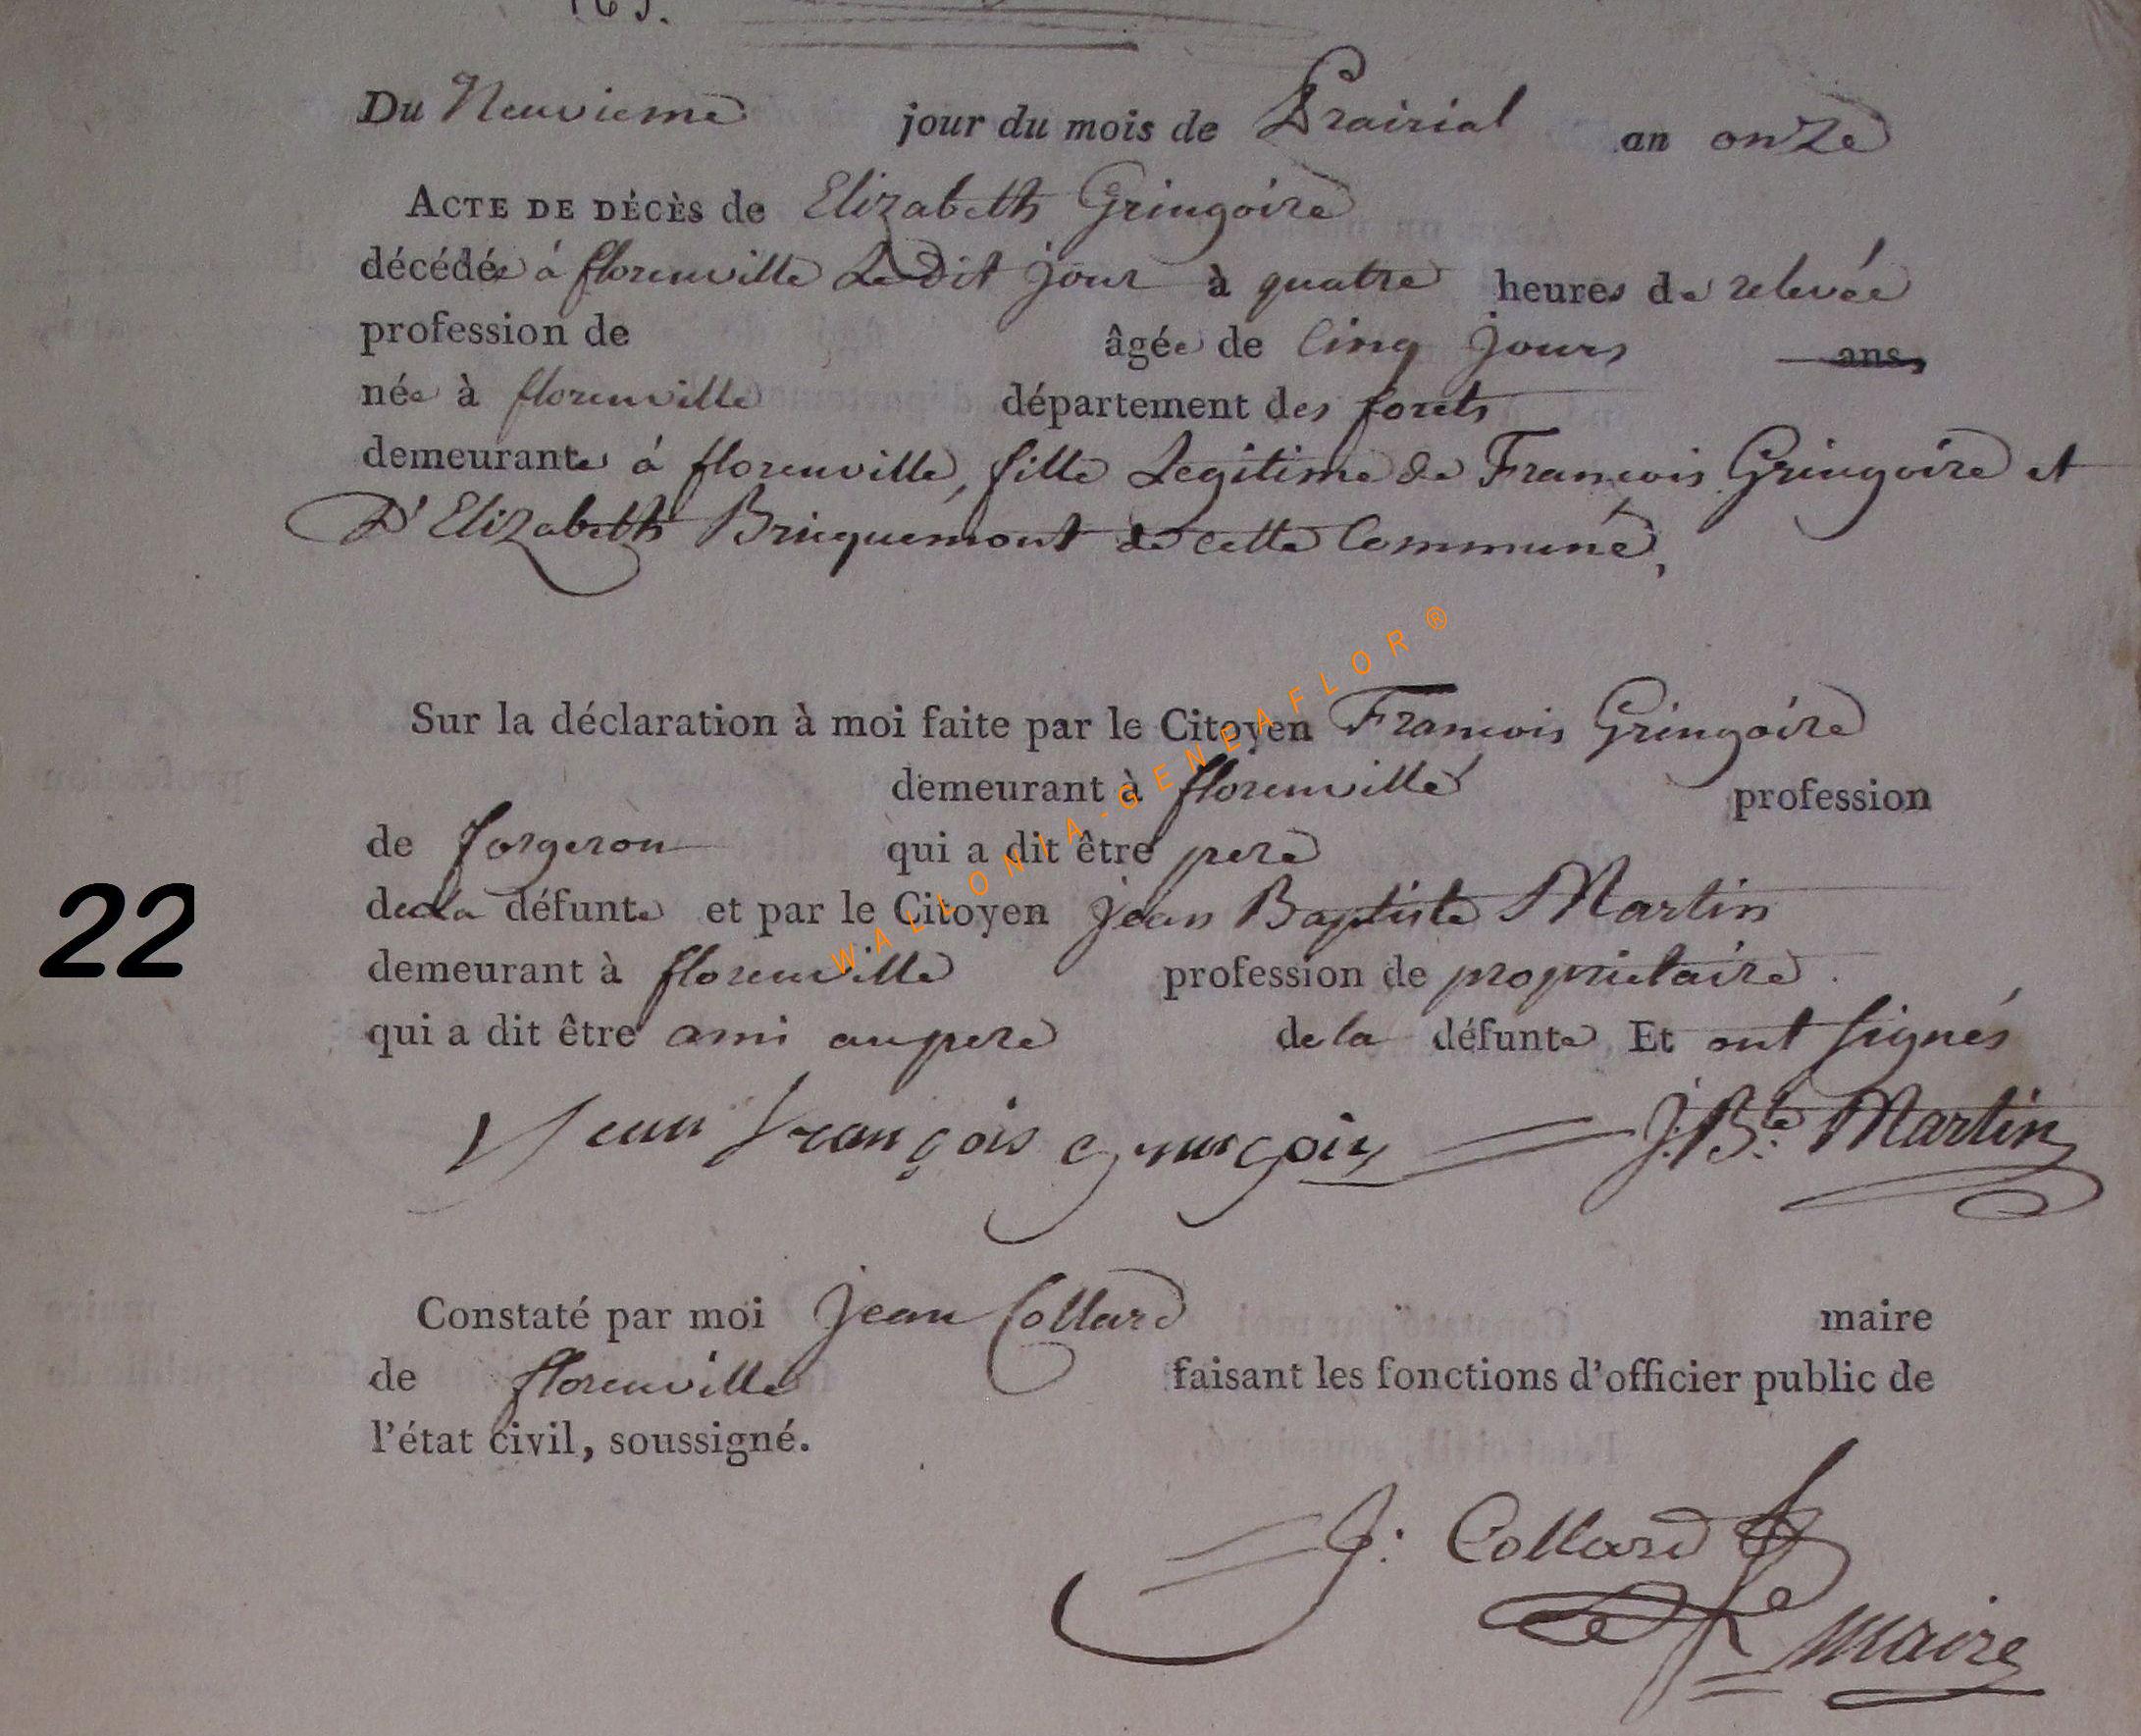 Du Neuvieme jour du mois de Prairial an onze
ACTE DE DÉCÈS de Elizabeth Gringoire
décédée á florenville Le Dit jour à quatre heures de relevée
profession de âgée de Cinq jours ans
née à florenville département des forets
demeurante á florenville, fille Legitime de Francois Gringoire et
D'Elizabeth Briquemont de cette Commune,
Sur la déclaration à moi faite par le Citoyen Francois Gringoire
demeurant à florenville profession
de forgeron qui a dit être pere
de la défunte et par le Citoyen jean Baptiste Martin
22
demeurant à florenville profession de proprietaire.
qui a dit être ami au pere de la défunte Et ont signés
Jean françois J. Bte. Martin
Constaté par moi Jean Collard maire
de florenville faisant les fonctions d'officier public de
l'état civil, soussigné.
J: Collard
maire
WALLONIA-GENEAFLOR ®